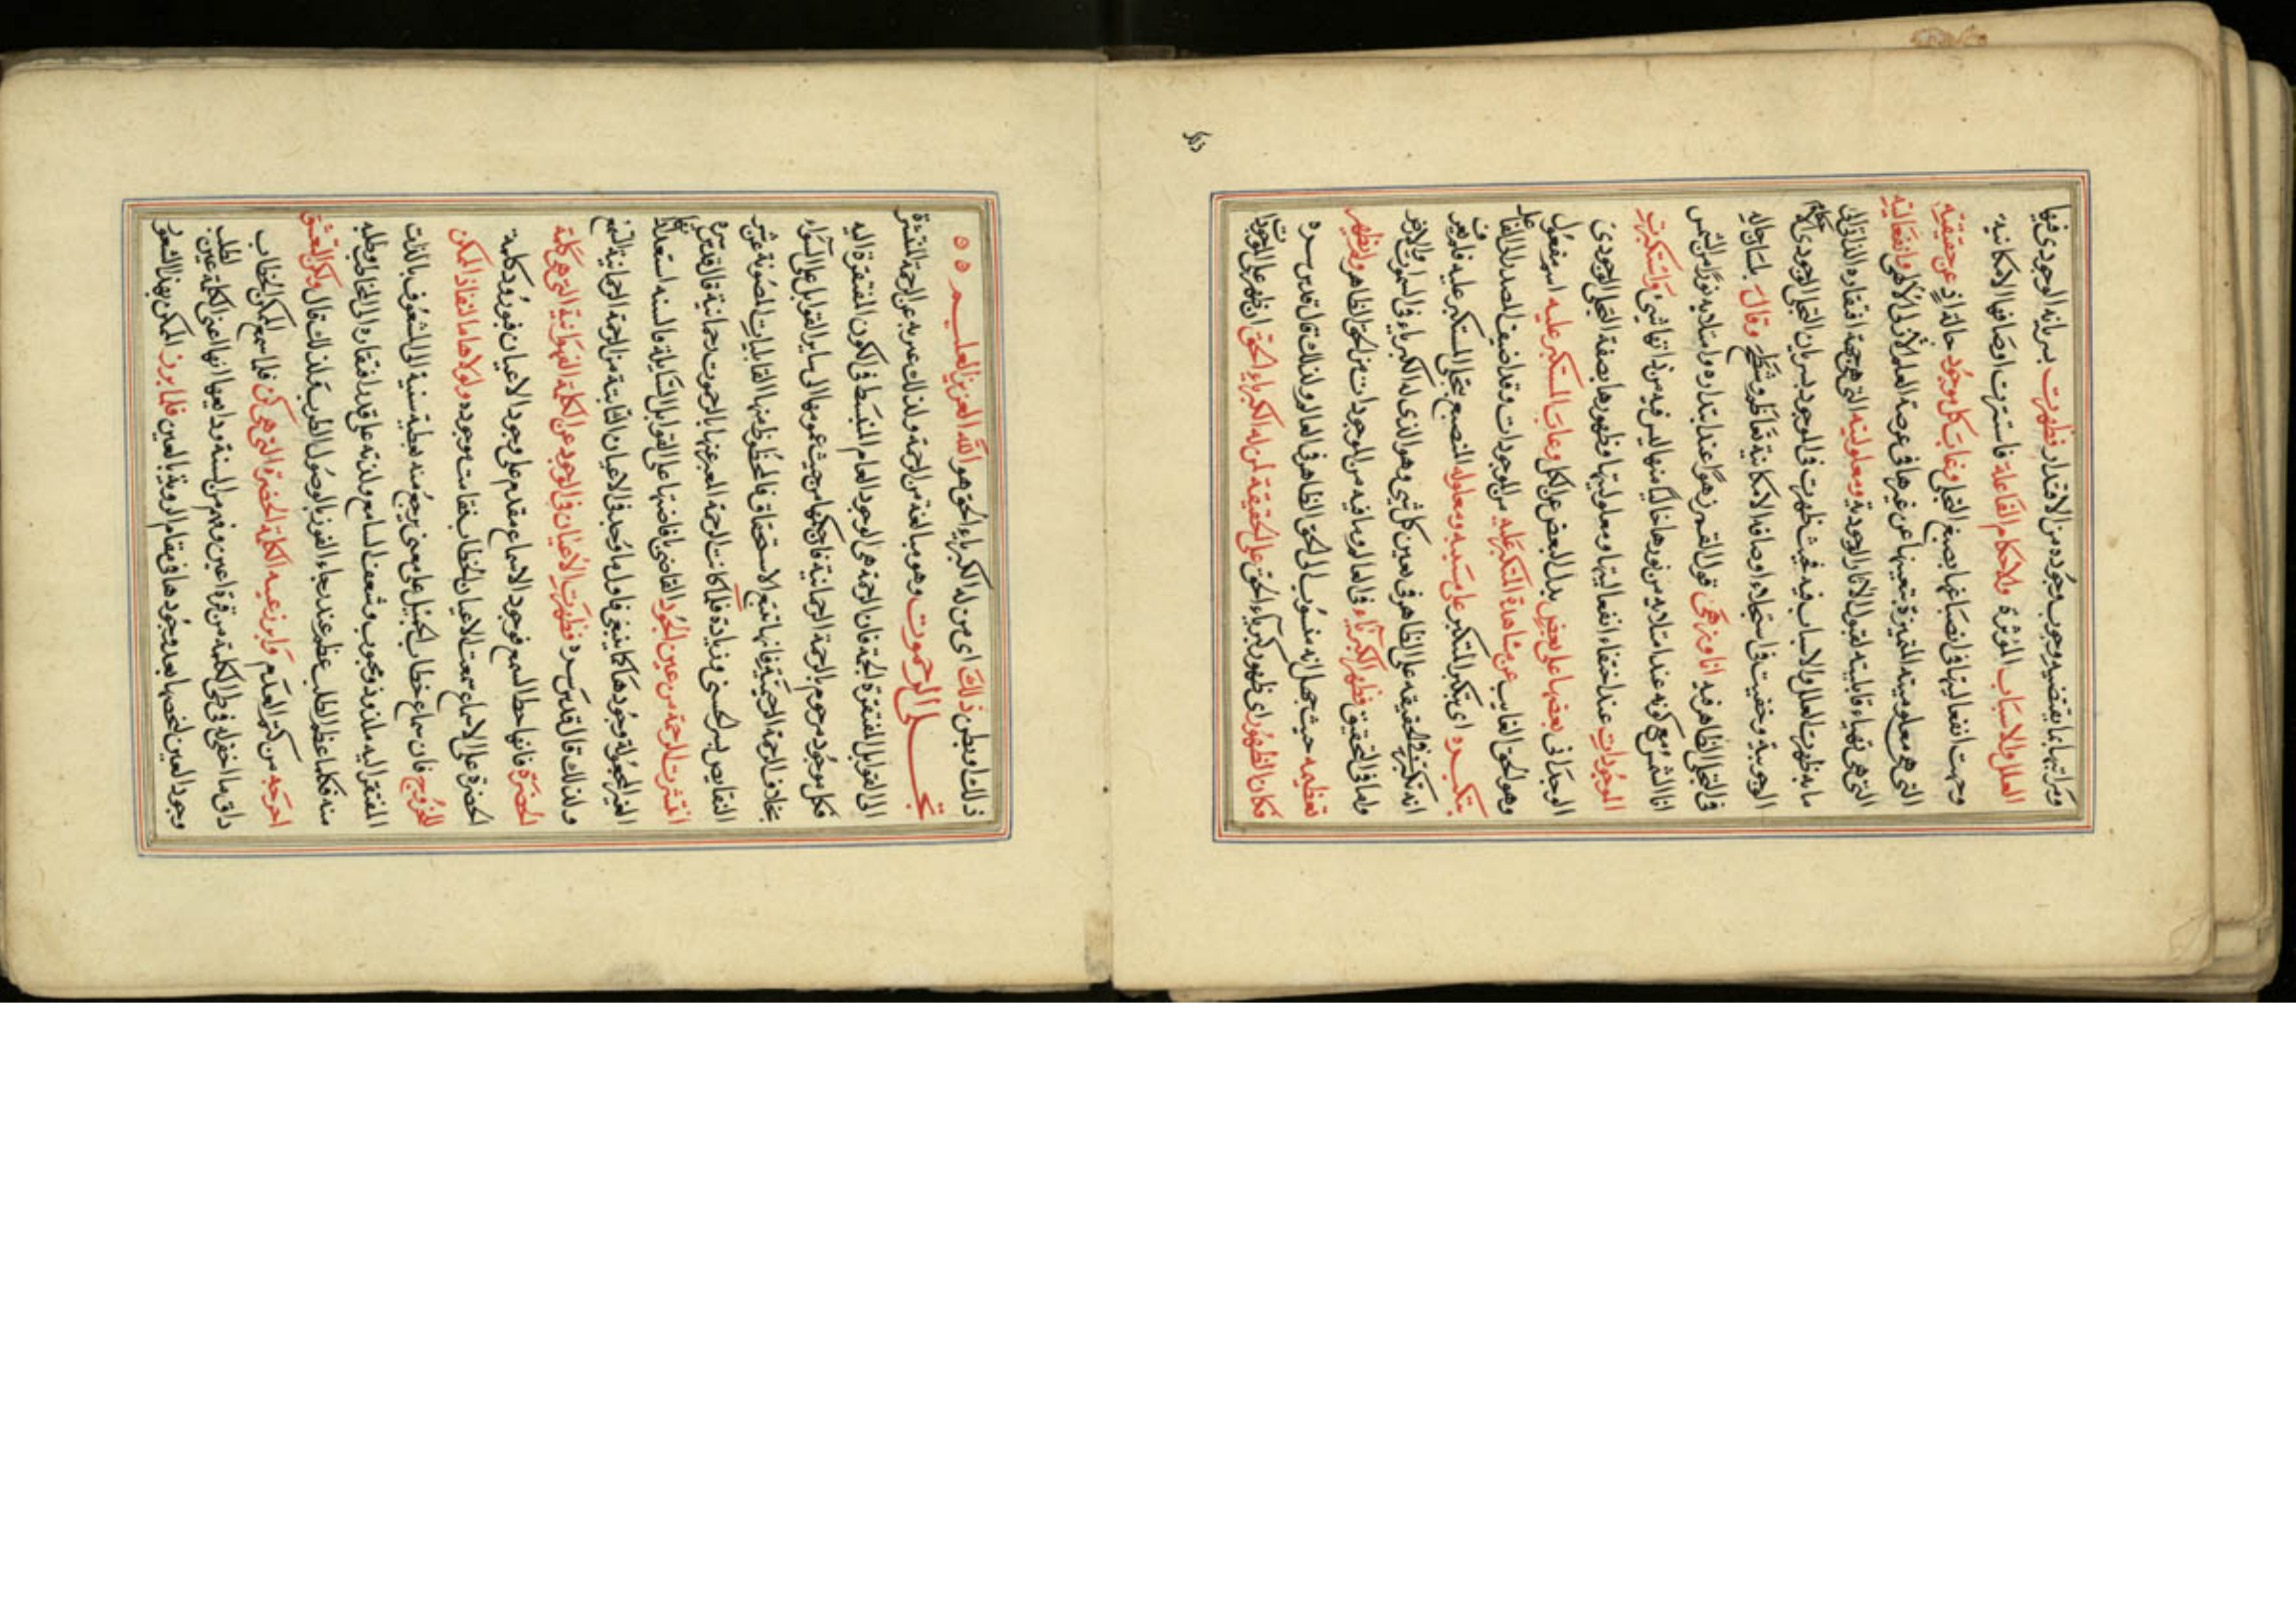 ومرتبتها بما يقتضيه وجوب وجوده من الاقتدار فظهرت بسريانه الوجودى فيها
العلل والاسباب المؤثرة والاحكام الفاعلة فاستترت اوصافها الامكانية
وجهت انفعاليتها فى انصباغها بصبغ التجلى وغاب كل موجود حالتئذ عن حقيقته
التى هى معلوميته المتميزة بتعينها عن غيرها فى عرصة العلم الالهى وانفعاليته
التى هى تهياء قابليته لقبول الاثار الوجودية ومعلوليته التى هى جهة افتقاره
ما به ظهرت العلل والاسباب فيه فحيث ظهرت فى الوجود بسريان التجلى الوجودى
الوجوبية وخفيت فى استجلاء اوصافه الامكانية تعاظم وشطح وقال بلسان حاله
فى التجلى الظاهر فيه انا وزهى زهو القمر عند ابتداره وامتلائه نورا من الشمس
انا الشمس مع كونه عند امتلائه من نورها خاليا منها ليس فيه من ذاتها شئ واستكبرت
الموجودات عند اختفاء انفعاليتها ومعلوليتها وظهورها بصفة التجلى الوجودى
الوحدانى بعضها على بعض بدل البعض عن الكل وغاب المستكبر عليه اسم مفعول
وهو الحق الغائب عن مشاهدة المتكبر عليه من الموجودات وقد اضيف المصدر الى الفاعل
بتكبره اى بتكبر المتكبر على مسببه ومعلوله المنصبغ بتجلى المستكبر عليه فلم يعرف
انه تكبر فى الحقيقه على الظاهر فى تعين كل شئ وهو الذى له الكبرياء فى السموات والارض
ولما فى التحقيق فظهر الكبرياء فى العالم وما فيه من الموجودات من الحق الظاهر ولم يظهر
تعظيمه حيث جهل انه منسوب الى الحق الظاهر فى العالم ولذلك قال قدس سره
فكان الظهور اى ظهور كبرياء الحق على الحقيقة لمن له الكبرياء الحق ان ظهر على الوجودات
ذلك
ذلك او بطن ذلك اى من له الكبرياء الحق هو الله العزيز العليم ه ه
تجلى الرحموت وهو مبالغة من الرحمة ولذلك عبر به عن الرحمة المنتشرة
الى القوابل المفتقرة الجمة فان الرحمة هى الوجود العام المنبسط فى الكون المفتقرة اليه
فكل موجود مرحوم بالرحمة الرحمانية فان حكمها من حيث عمومها الى ساير القوابل على السواء
بخلاف الرحمة الرحيمية فانها تتبع الاستحقاق فالمحظوظ منها القابليات المصونة عن شين
النقايص بسر الحسنى وزيادة فلما كانت الرحمة المعبر عنها بالرحموت رحمانية قال قدس سره
انتشرت الرحمة من عين الجود القاضى بافاضتها على القوابل السائلة بالسنة استعداداتها
الغير المجعولة وجودها كما ينبغى فاول ما وجد فى الاعيان الثابتة من الرحمة الرحمانية السمع
ولذلك قال قدس سره فظهرت الاعيان فى الوجود عن الكلمة الفهوانية التى هى كلمة
الحضرة فانها حظ السمع فوجود الاسماع مقدم على وجود الاعيان فبورود كلمة
الحضرة على الاسماع سمعت الاعيان الخطاب فقامت موجوده ولولاها ما نفذ الممكن
للخروج فان سماع خطاب الجميل على معنى يرجع منه بعطية سنية الى المشعوف بالذات
المفتقر اليه ملذوذ ومحبوب وشعف السامع ولذته على قدر افتقاره الى المخاطب وطلبه
منه فكلما عظم الطلب عظم عند رجاء الفوز بالوصول الطرب فلذلك قال ولكن التعشق
اخرجه من كتم العدم وابرز عينه الكلمة الحضرة التى هى كن فلما سمع الممكن الخطاب
ذاق ما اخفى له فى طى الكلمة من قرة اعين وفهم من السنة ودايعها انها اعنى الكلمة عين لطلب
وجود العين لتخصها بعد وجودها فى مقام الروية بالعين فلما برز الممكن بهذا الشعور